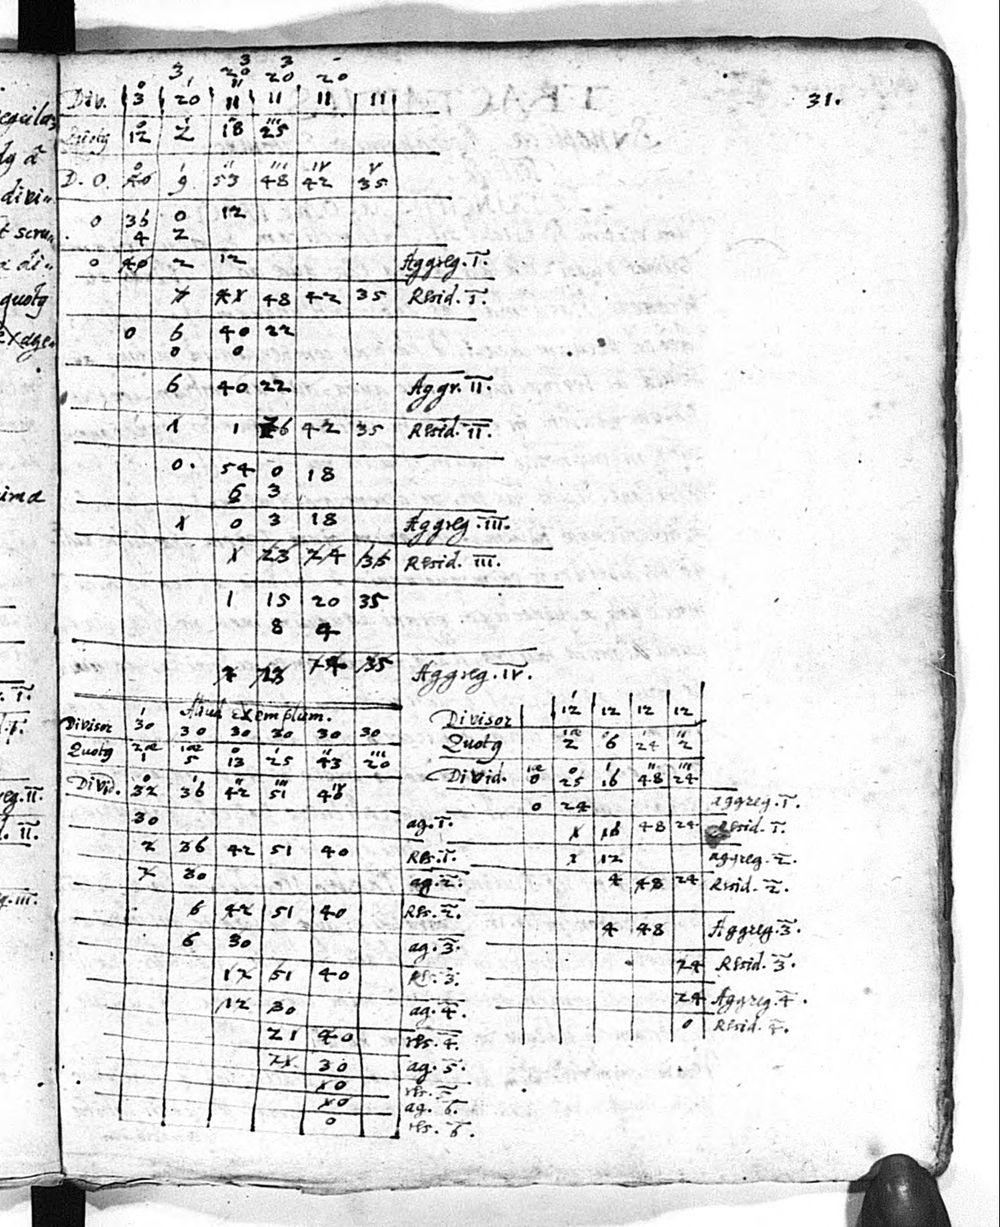 31.
3 20 20 20
Div. 3 20 11 11 11 11
Quotq 12 2 18 25
D. O. 40 9 53 48 42 35
0 36 0 12
4 2
0 40 2 12 Aggreg. I.
7 41 48 42 35 Resid. I.
0 6 40 22
0 0
6 40 22 Aggr. II.
1 1 26 42 35 Resid. II.
0. 54 0 18
6 3
1 0 3 18 Aggreg. III.
1 23 24 35 Resid. III.
1 15 20 35
8 4
1 23 24 35 Aggreg. IV.
Aliud Exemplum.
Divisor 30 30 30 30 30 30
Quotq 1 5 13 25 43 20
Divid. 32 36 42 51 40
30 ag. 1.
2 36 42 51 40 Res. 1.
2 30 ag. 2.
6 42 51 40 Res. 2.
6 30 ag. 3.
12 51 40 Rs. 3.
12 30 ag. 4.
21 40 res. 4.
21 30 ag. 5.
10 rs. 5.
10 ag. 6.
0 rs. 6.
Divisor 12 12 12 12
Quotq 2 6 24 2
Divid. 0 25 16 48 24
0 24 aggreg. 1.
1 16 48 24 Resid. 1.
1 12 aggreg. 2.
4 48 24 Resid. 2.
4 48 Aggreg. 3.
24 Resid. 3.
24 Aggreg. 4.
0 Resid. 4.